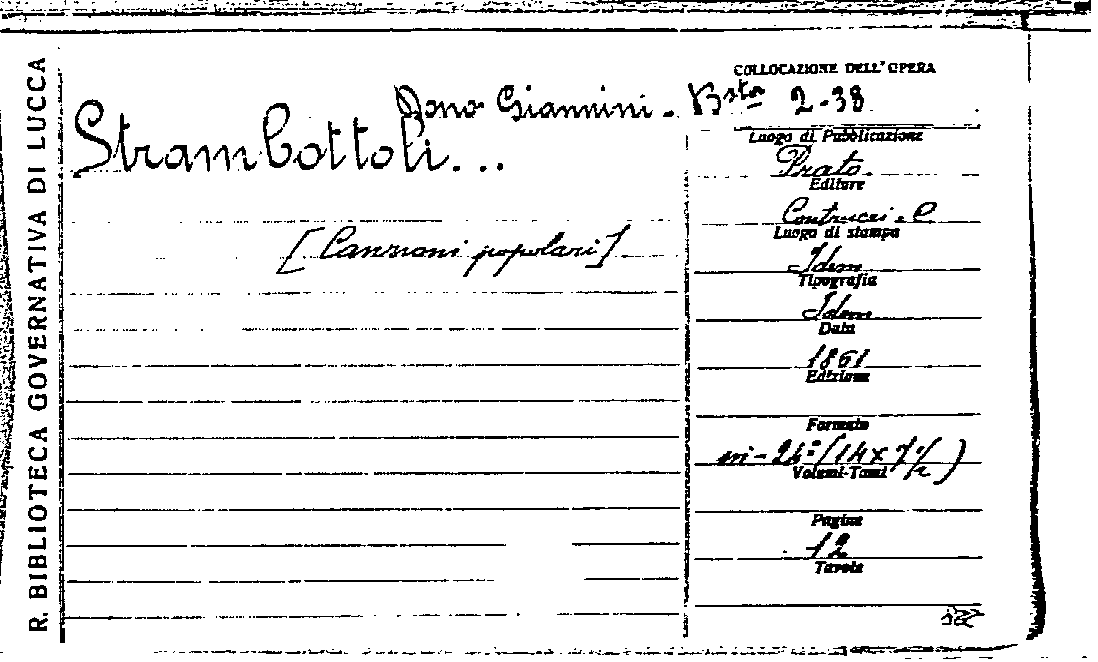 R. BIBLIOTECA GOVERNATIVA DI LUCCA
COLLOCAZIONE DELL'OPERA
Dono Giannini - Bsta 2-38
Strambottoli...
[Canzoni popolari]
Luogo di Pubblicazione
Prato.
Editore
Contrucci e C
Luogo di stampa
Idem
Tipografia
Idem
Data
1861
Edizione
Formato
in-24º (14 x 7 1/2)
Volumi-Tomi
Pagine
12
Tavole